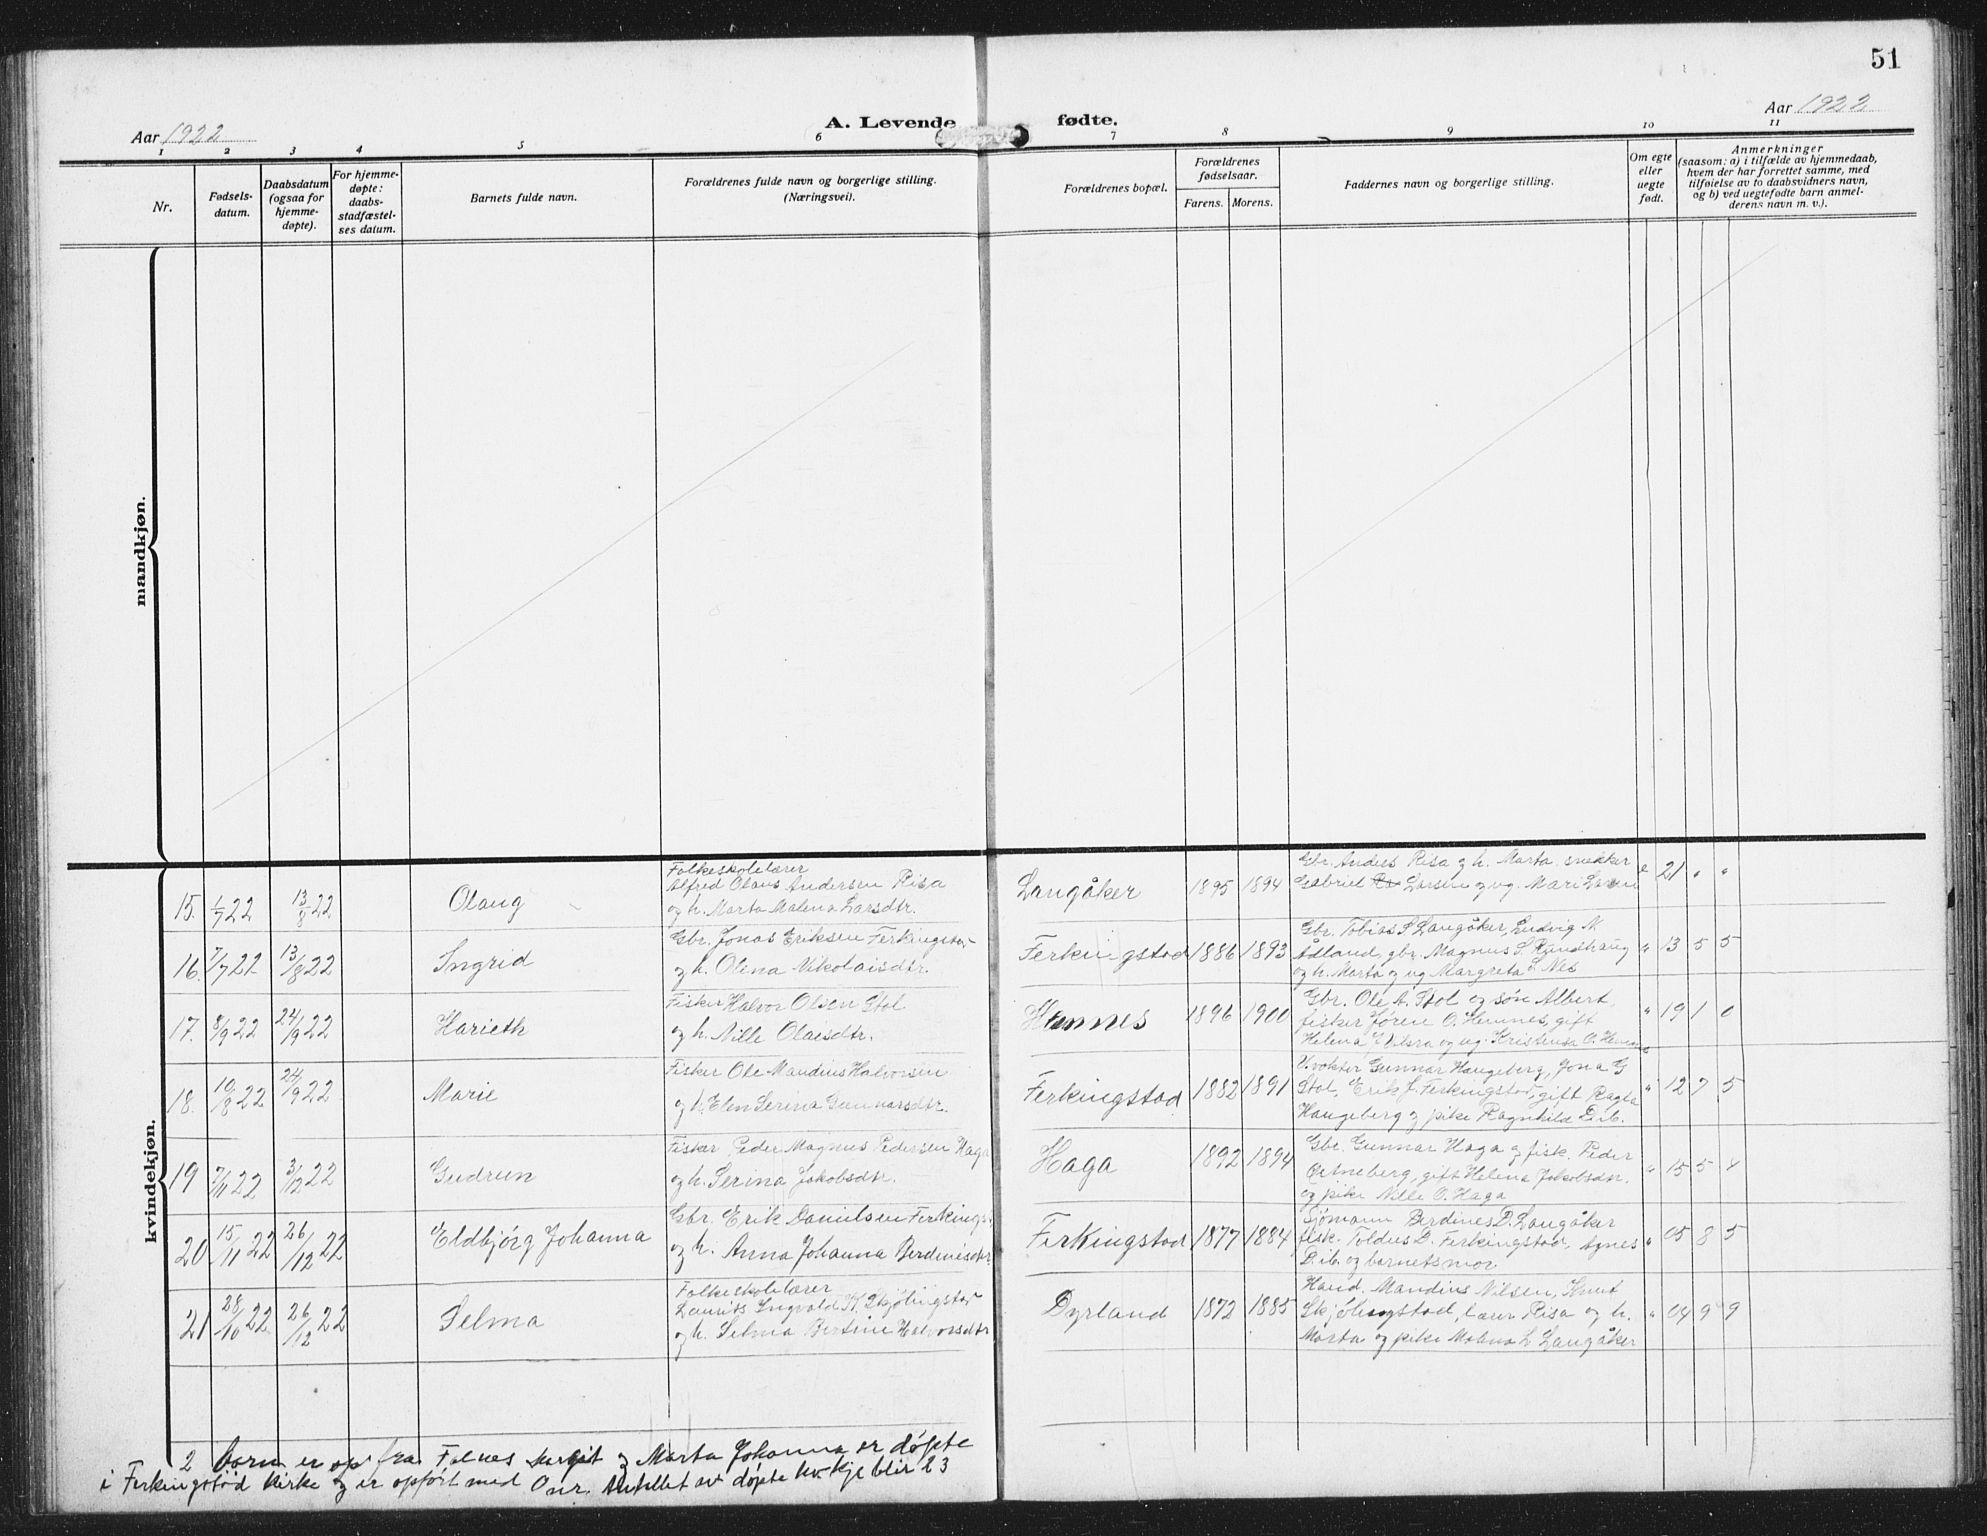 51
Aar 1922
A. Levende fødte.
Aar 1922
1 2 3 4 5 6 7 8 9 10 11
Nr.
Fødsels-
datum.
Daabsdatum
(ogsaa for
hjemme-
døpte).
For hjemme-
døpte:
daabs-
stadfæstel-
ses datum.
Barnets fulde navn.
Forældrenes fulde navn og borgerlige stilling.
(Næringsvei).
Forældrenes bopæl.
Forældrenes
fødselsaar.
Farens. Morens.
Faddernes navn og borgerlige stilling.
Om egte
eller
uegte
født.
Anmerkninger
(saasom: a) i tilfælde av hjemmedaab,
hvem der har forrettet samme, med
tilføielse av to daabsvidners navn,
og b) ved uegtefødte barn anmel-
derens navn m. v.).
mandkjøn.
kvindekjøn.
15. 1/7 22 13/8 22 Olaug
Folkeskolelærer
Alfred Olaus Andersen Risa
og h. Marta Malena Larsdtr.
Langåker 1895 1894
Gbr. Anders Risa og h. Marta, snekker
Gabriel Larsen og ug. Mari Larsen
e 21 " "
16. 7/7 22 13/8 22 Ingrid
Gbr. Jonas Eriksen Ferkingstad
og h. Olena Nikolaisdtr.
Ferkingstad 1886 1893
Gbr. Tobias S Langåker, Ludvig N
Ådland, gbr. Magnus S. Rundhaug
og h. Marta og ug Margreta S. Nes
" 13 5 5
17. 8/9 22 24/9 22 Harieth
Fisker Halvor Olsen Stol
og h. Nille Olaisdtr.
Hemnes 1896 1900
Gbr. Ole A. Stol og søn Albert
fisker Jøren O. Hemnes, gift
Helena og ug. Kristensa O. Hemnes
" 19 1 0
18. 10/8 22 24/9 22 Marie
Fisker Ole Mandius Halvorsen
og h. Elen Serina Gunnarsdtr.
Ferkingstad 1882 1891
Gunnar Haugeberg, Jona G
Stol, Erik J. Ferkingstad, gift
Haugeberg og pike Ragnhilda L. ib.
" 12 7 5
19 7/11 22 3/12 22 Gudrun
Fisker Peder Magnus Pedersen Haga
og h. Serina Jakobsdtr.
Haga 1892 1894
Gbr. Gunnar Haga og fisk. Peder
Østneberg, gift Helena Jakobsdtr.
og pike Nille O. Haga
" 15 5 4
20 15/11 22 26/12 22 Eldbjørg Johanna
Gbr. Erik Danielsen Ferkings.
og h. Anna Johanna Berdinesdtr.
Ferkingstad 1877 1884
Sjømann Berdines D. Langåker
fisk. Toldus D. Ferkingstad, Agnes
D. ib. og barnets mor
" 05 8 5
21 28/10 22 26/12 22 Selma
Folkeskolelærer
Laurits Ingvald K. Skjølingstad
og h. Selma Bertine Halvorsdtr
Dyrland 1872 1885
Hand. Mandius Nilsen, Knut
Skjølingstad, lærer Risa og h.
Marta og pike Malena L Langåker
" 04 9 9
2 børn er op fra Falnes Margit og Marta Johanna er døpte
i Ferkingstad kirke og er opført med 0 nr. Antallet av døpte kv.kje blir 23